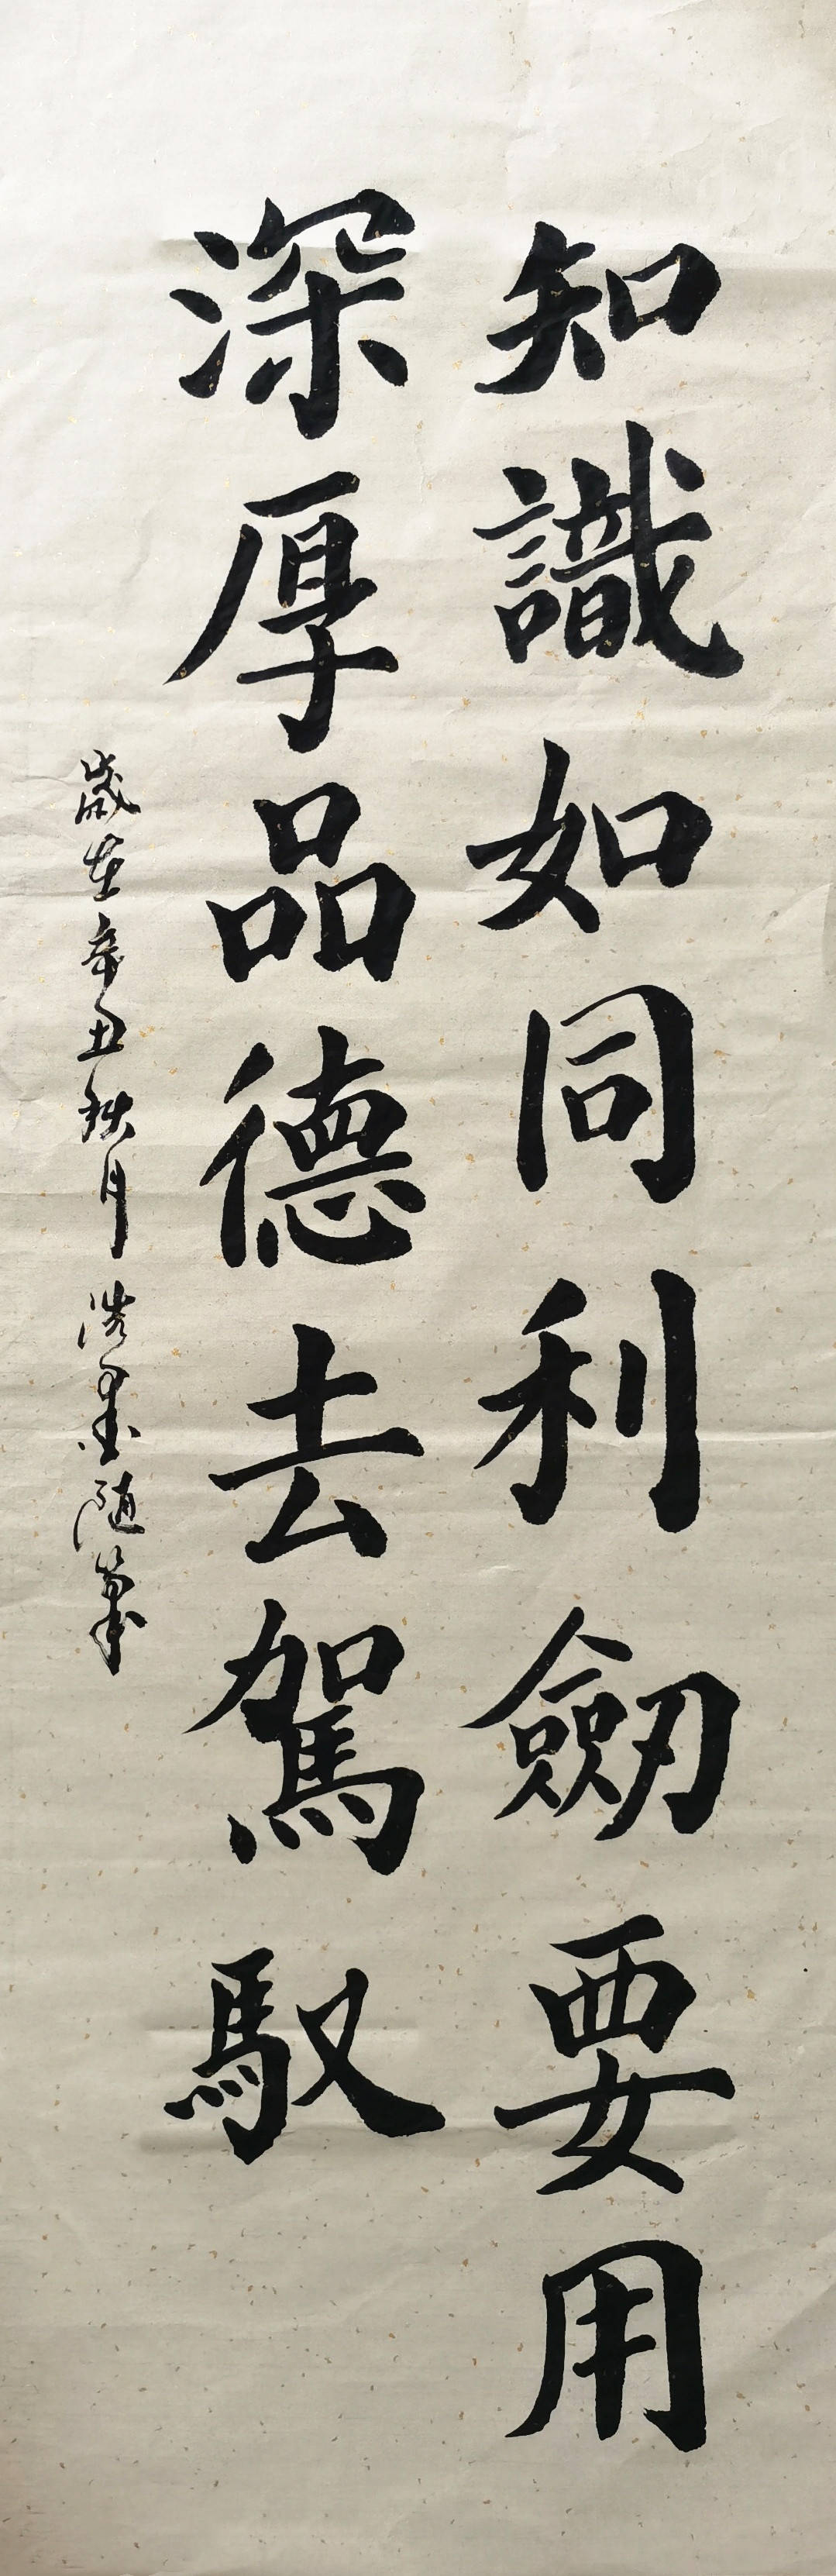 知識如同利劒要用
深厚品德去駕馭
歲在辛丑秋月浩墨随筆